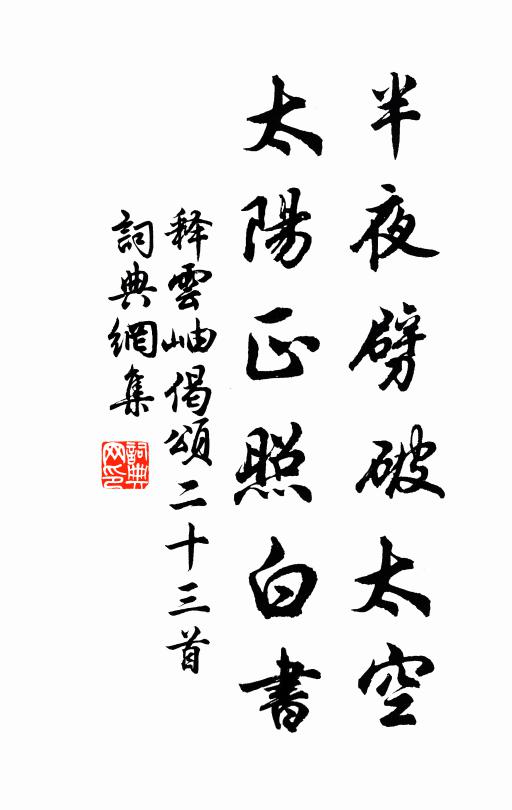 半夜劈破太空
太陽正照白書
释雲岫偈頌二十三首
詞典網集
詞典网印